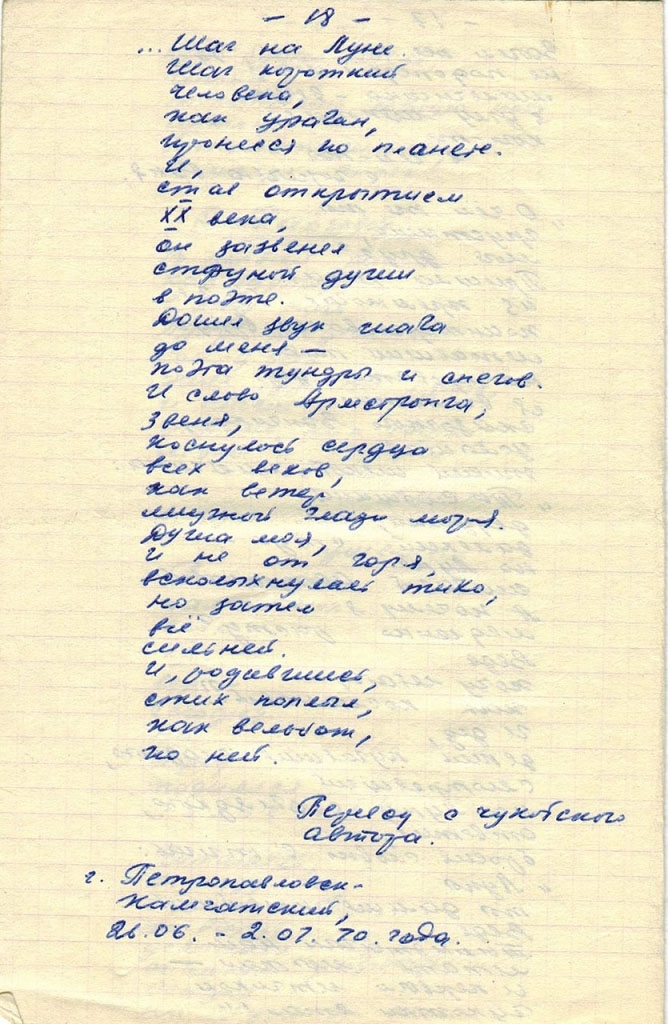 - 18 -
... Шаг на Луне.
Шаг короткий
человека,
как ураган,
пронёсся по планете.
И,
став открытием
XX века,
он зазвенел
струной души
в поэте.
Дошёл звук шага
до меня —
поэта тундры и снегов.
И слово Армстронга,
звеня,
коснулось сердца
всех веков,
как ветер
лунной глади моря.
Душа моя,
и не от горя,
всколыхнулась тихо,
но затем
всё
сильней.
И, родившись,
стих поплыл,
как вельбот,
по ней.
Перевод с чукотского
автора.
г. Петропавловск-
Камчатский,
26.06. - 2.07.70. года.